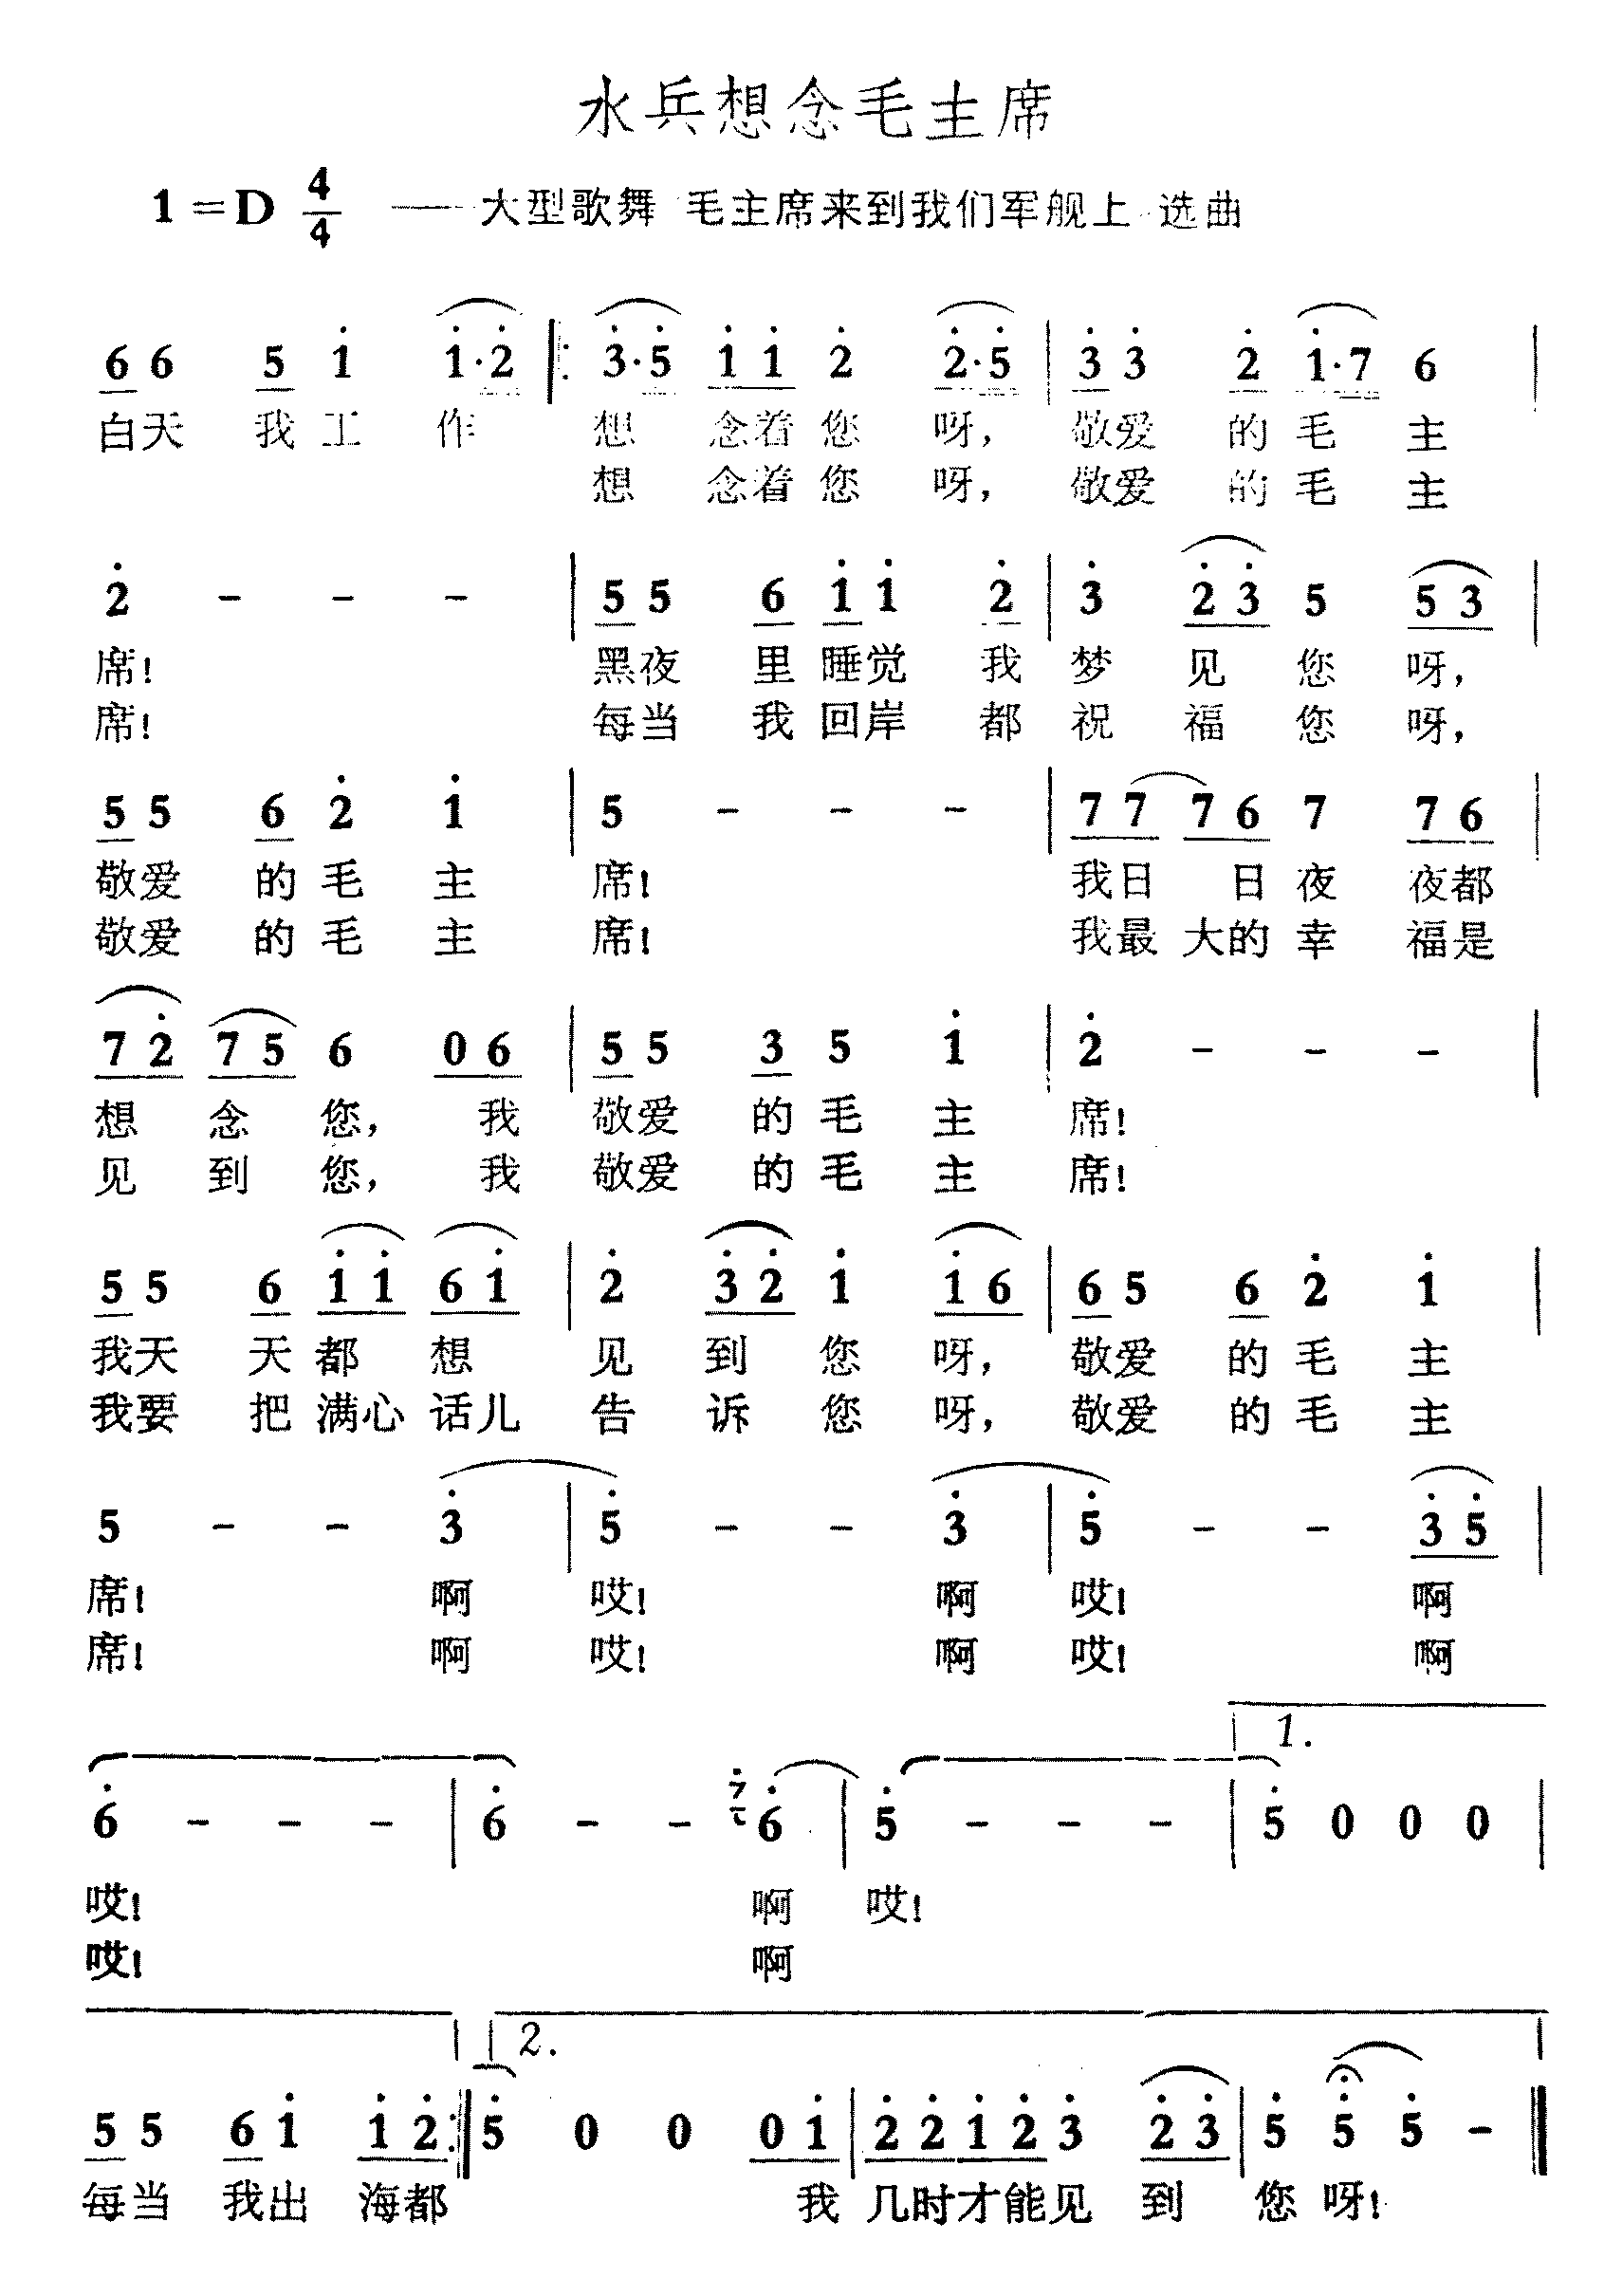 水兵想念毛主席
1=D 4/4 ——大型歌舞 毛主席来到我们军舰上 选曲
6 6 5 1 1·2 3·5 1 1 2 2·5 3 3 2 1·7 6
白天 我工 作 想 念着您 呀, 敬爱 的毛 主
想 念着您 呀, 敬爱 的毛 主
2 - - - 5 5 6 1 1 2 3 2 3 5 5 3
席! 黑夜 里睡觉 我 梦 见 您 呀,
席! 每当 我回岸 都 祝 福 您 呀,
5 5 6 2 1 5 - - - 7 7 7 6 7 7 6
敬爱 的毛 主 席! 我日 日夜 夜都
敬爱 的毛 主 席! 我最 大的幸 福是
7 2 7 5 6 0 6 5 5 3 5 1 2 - - -
想 念 您, 我 敬爱 的毛 主 席!
见 到 您, 我 敬爱 的毛 主 席!
5 5 6 1 1 6 1 2 3 2 1 1 6 6 5 6 2 1
我天 天都 想 见 到 您 呀, 敬爱 的毛 主
我要 把满心 话儿 告 诉 您 呀, 敬爱 的毛 主
5 - - 3 5 - - 3 5 - - 3 5
席! 啊 哎! 啊 哎! 啊
席! 啊 哎! 啊 哎! 啊
1.
6 - - - 6 - - 7 6 5 - - - 5 0 0 0
哎! 啊 哎!
哎! 啊
2.
5 5 6 1 1 2 5 0 0 0 1 2 2 1 2 3 2 3 5 5 5 -
每当 我出 海都 我 几时才能见 到 您 呀!